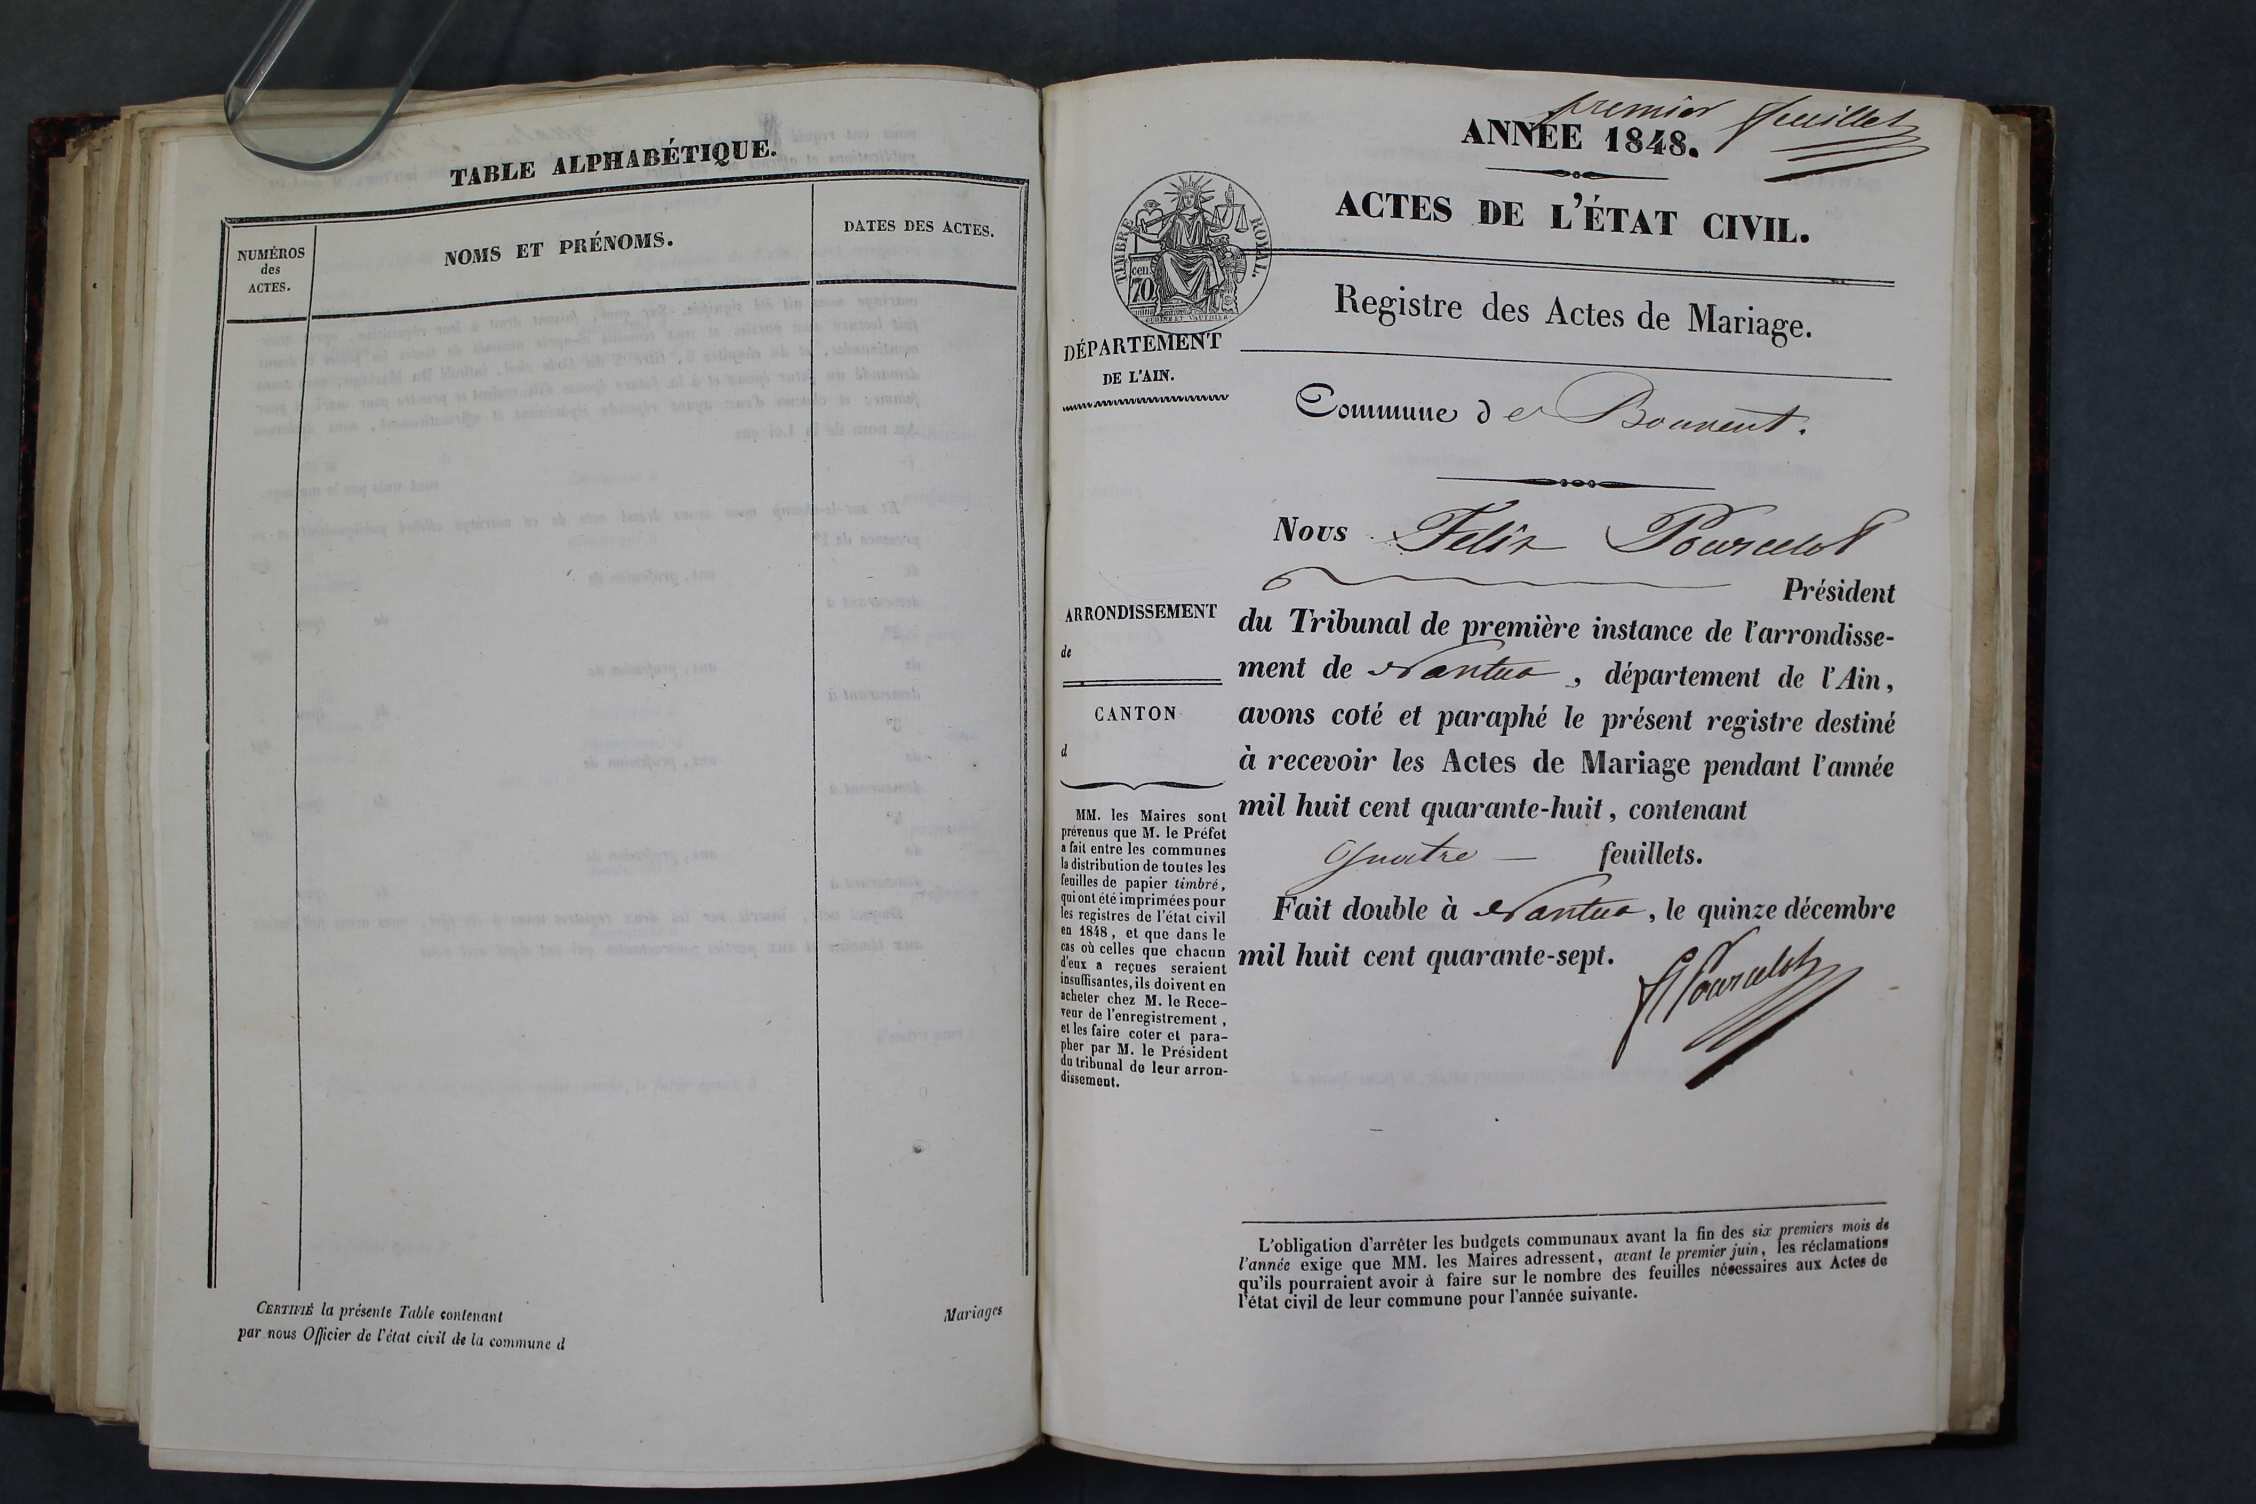 TABLE ALPHABÉTIQUE.
NUMÉROS
des
ACTES.
NOMS ET PRÉNOMS.
DATES DES ACTES.
CERTIFIÉ la présente Table contenant
Mariages
par nous Officier de l'état civil de la commune d
premier feuillet
ANNÉE 1848.
ACTES DE L'ÉTAT CIVIL.
TIMBRE ROYAL.
cen
70
Registre des Actes de Mariage.
DÉPARTEMENT
DE L'AIN.
Commune de Bouvent.
Nous Felix Pourcelot
Président
ARRONDISSEMENT
de
CANTON
d
du Tribunal de première instance de l'arrondisse-
ment de Nantua, département de l'Ain,
avons coté et paraphé le présent registre destiné
à recevoir les Actes de Mariage pendant l'année
mil huit cent quarante-huit, contenant
Quatre — feuillets.
Fait double à Nantua, le quinze décembre
mil huit cent quarante-sept.
Pourcelot
MM. les Maires sont
prévenus que M. le Préfet
a fait entre les communes
la distribution de toutes les
feuilles de papier timbré,
qui ont été imprimées pour
les registres de l'état civil
en 1848, et que dans le
cas où celles que chacun
d'eux a reçues seraient
insuffisantes, ils doivent en
acheter chez M. le Rece-
veur de l'enregistrement,
et les faire coter et para-
pher par M. le Président
du tribunal de leur arron-
dissement.
L'obligation d'arrêter les budgets communaux avant la fin des six premiers mois de
l'année exige que MM. les Maires adressent, avant le premier juin, les réclamations
qu'ils pourraient avoir à faire sur le nombre des feuilles nécessaires aux Actes de
l'état civil de leur commune pour l'année suivante.